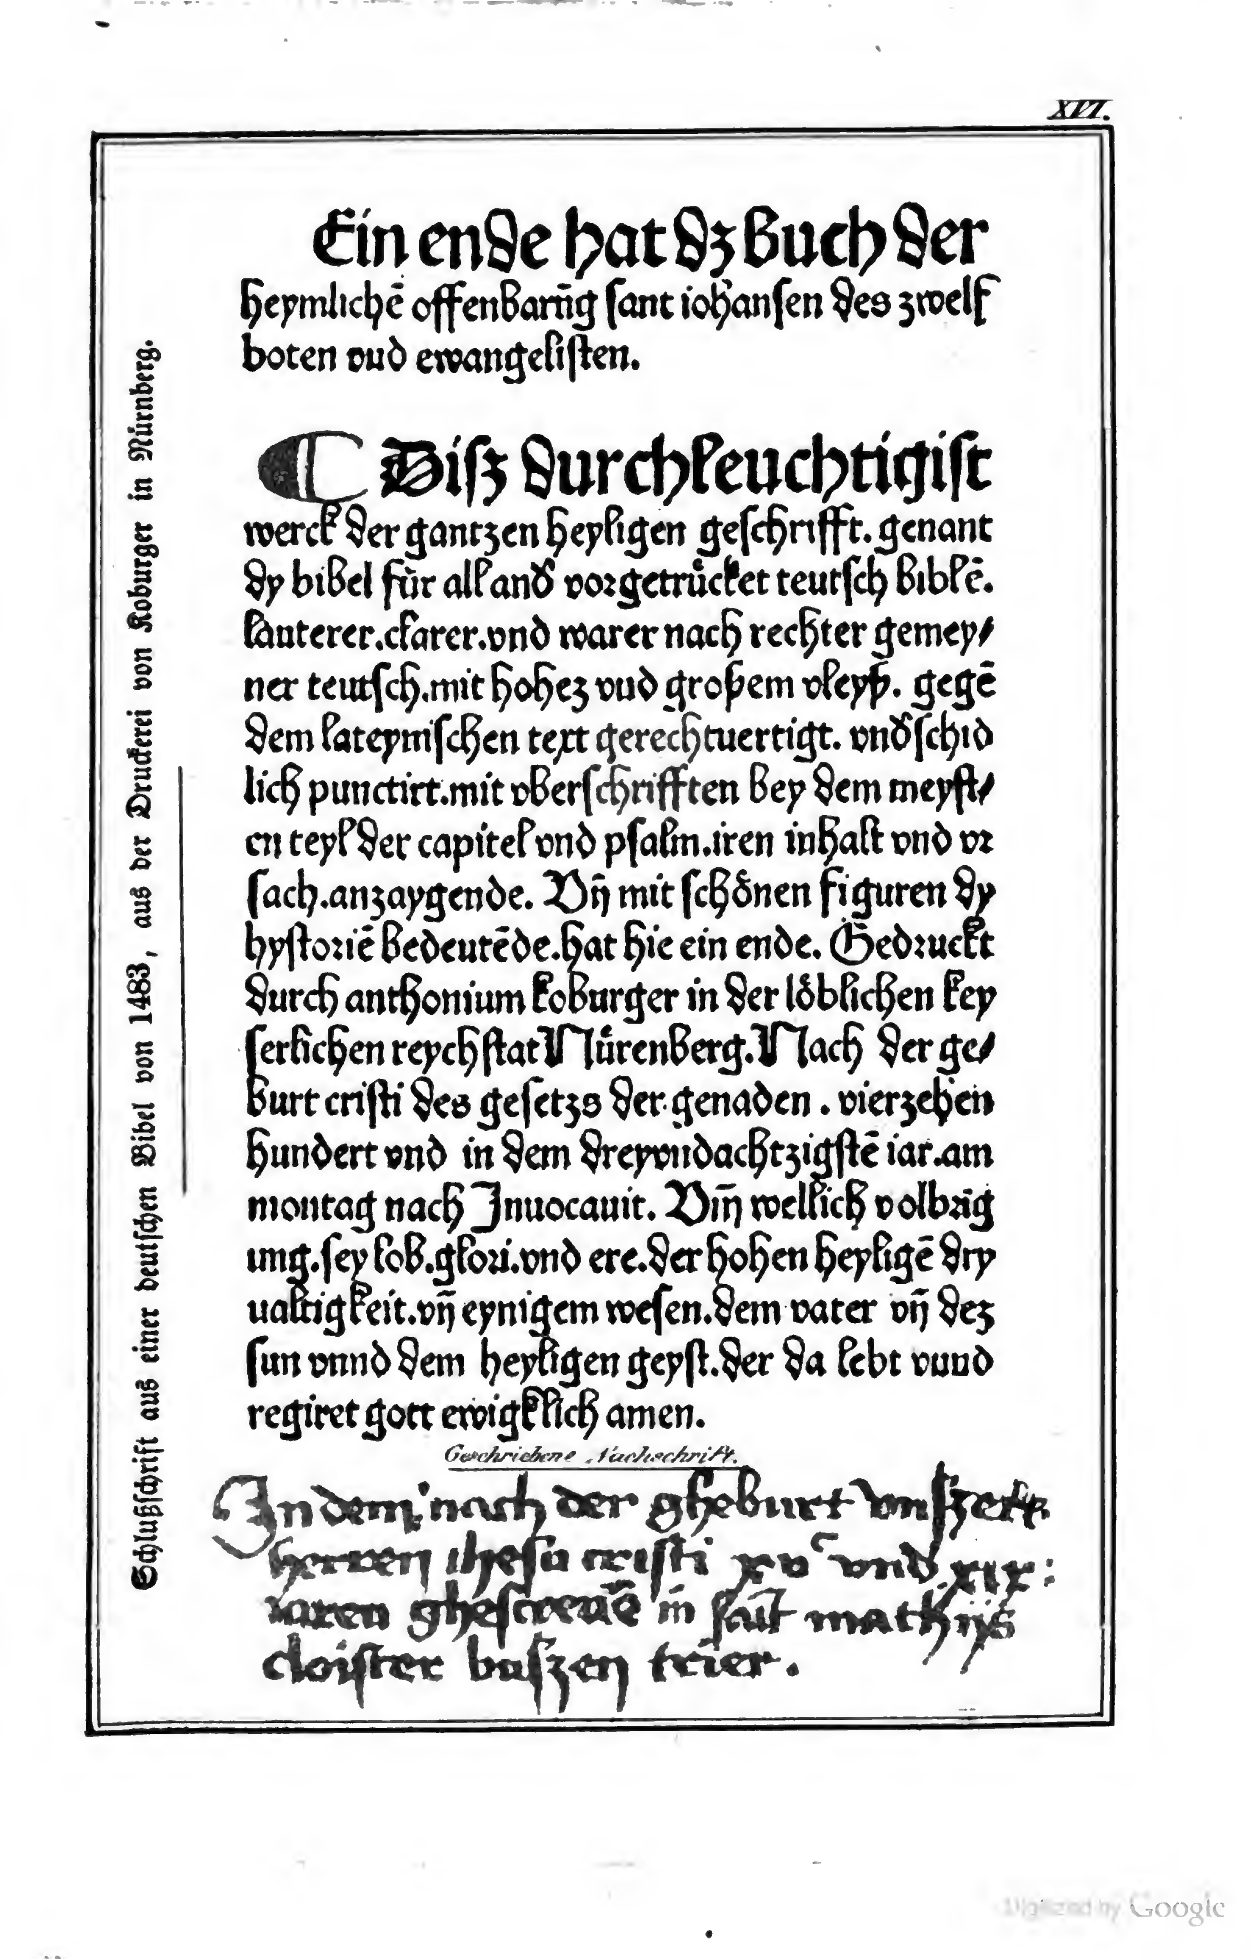 XVI.
Schlußschrift aus einer deutschen Bibel von 1483, aus der Druckerei von Koburger in Nürnberg.
Ein ende hat dz buch der
heymlichē offenbarūg sant iohansen des zwelf
boten vnd ewangelisten.
Disz durchleuchtigist
werck der gantzen heyligen geschrifft. genant
dy bibel für all and̕ vorgetrücket teutsch biblē.
lauterer. clarer. vnd warer nach rechter gemey⸗
ner teutsch. mit hohez vnd großem vleyß. gegē
dem lateynischen text gerechtuertigt. vnd̕schid
lich punctirt. mit vberschrifften bey dem meyst⸗
en teyl der capitel vnd psalm. iren inhalt vnd vr
sach. anzaygende. Vn̄ mit schönen figuren dy
hystoriē bedeutēde. hat hie ein ende. Gedruckt
durch anthonium koburger in der löblichen key
serlichen reychstat Nürenberg. Nach der ge⸗
burt cristi des gesetzs der genaden. vierzehen
hundert vnd in dem dreyvndachtzigstē iar. am
montag nach Inuocauit. Vm̄ wellich volbrīg
ung. sey lob. glori. vnd ere. der hohen heyligē dry
ualtigkeit. vn̄ eynigem wesen. dem vater vn̄ dez
sun vnnd dem heyligen geyst. der da lebt vnnd
regiret gott ewigklich amen.
Geschriebene Nachschrift.
In dem nach der gheburt vnszers
herren ihesu cristi xvᶜ vnd xix:
iaren ghescreuē in sāt mathijs
cloister buszen trier.
Digitized by Google